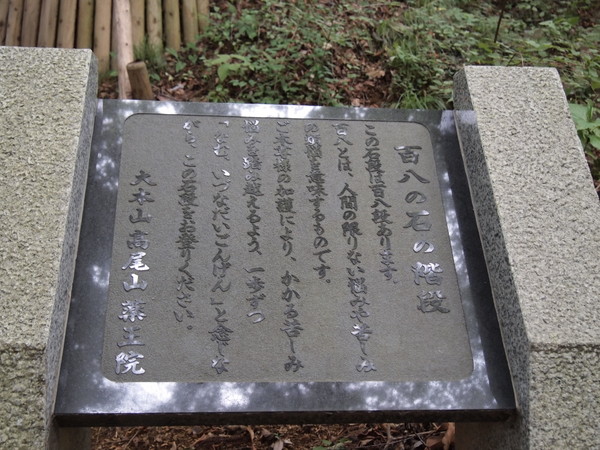 百八の石の階段
この石段は百八段あります。
百八とは、人間の限りない悩みや苦しみ
の煩悩を意味するものです。
ご本尊様の加護により、かかる苦しみ
悩みを踏み越えるよう、一歩ずつ
「なむ、いづなだいごんげん」と念じな
がら、この石段をお登りください。
大本山 高尾山薬王院